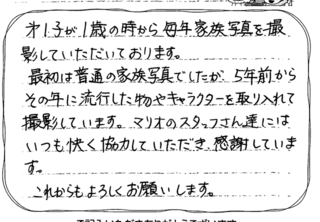 オ1子が1歳の時から毎年家族写真を撮
影していただいております。
最初は普通の家族写真でしたが、5年前から
その年に流行した物やキャラクターを取り入れて
撮影しています。マリオのスタッフさん達には
いつも快く協力していただき、感謝していま
す。
これからもよろしくお願いします。